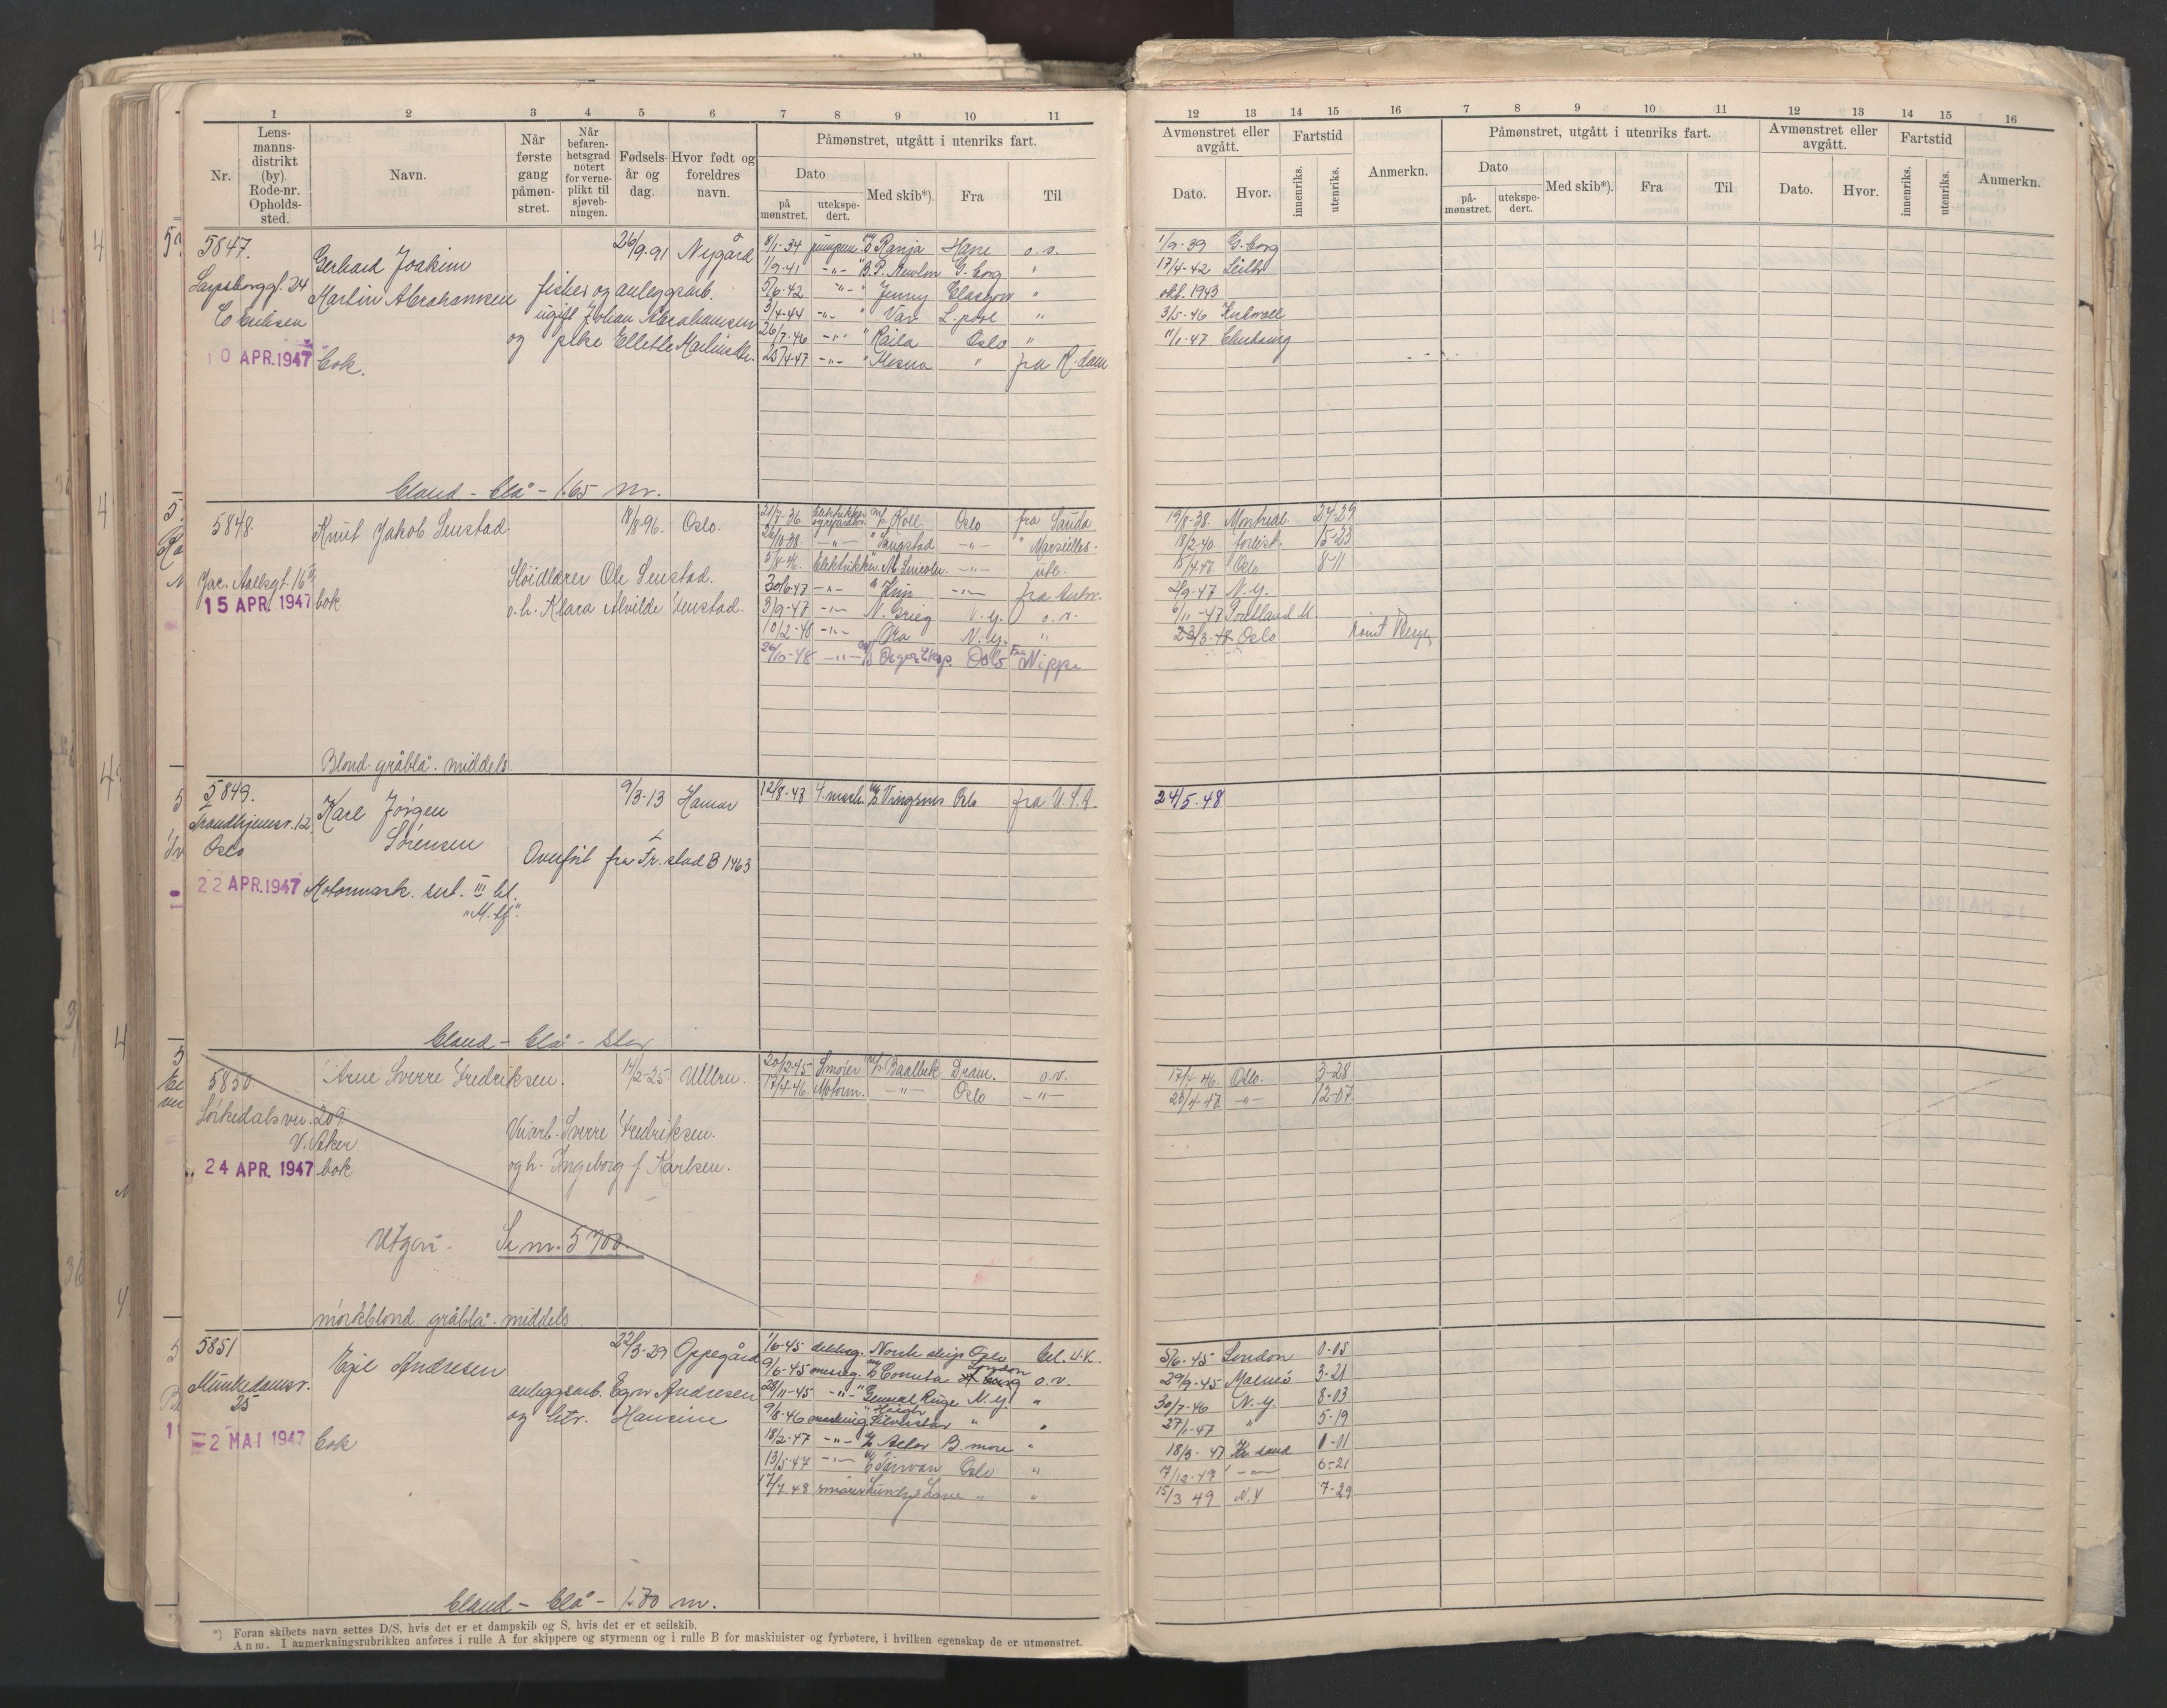 1 2 3 4 5 6 7 8 9 10 11
Nr.
Lens-
manns-
distrikt
(by).
Rode-nr.
Opholds-
sted.
Navn.
Når
første
gang
påmøn-
stret.
Når
befaren-
hetsgrad
notert
for verne-
plikt til
sjøveb-
ningen.
Fødsels-
år og
dag.
Hvor født og
foreldres
navn.
Påmønstret, utgått i utenriks fart.
Dato
på
mønstret.
utekspe-
dert.
Med skib*).
Fra
Til
12 13 14 15 16 7 8 9 10 11 12 13 14 15 16
Avmønstret eller
avgått.
Dato.
Hvor.
Fartstid
innenriks.
utenriks.
Anmerkn.
Påmønstret, utgått i utenriks fart.
Dato
på-
mønstret.
utekspe-
dert.
Med skib*).
Fra
Til
Avmønstret eller
avgått.
Dato.
Hvor.
Fartstid
innenriks.
utenriks.
Anmerkn.
5847.
Sarpsborggt. 24
10 APR. 1947 bok.
Gerhard Joakim
Martin Abrahamsen
26/9-91 Nygård
fisker og anleggsarb.
ugift Johan Abrahamsen
og pike Ellette
8/1-34 pumpem. Ranja Havre o.v. 1/9-39 G.borg
1/9-41 -"- B.P. Newton G.borg " 17/4-42 Leith
5/6-42 -"- " Jenny Glasgow " okt. 1943
3/4-44 -"- " Var L.pool " 3/5-46 Kirkwall
26/7-46 -"- " Raila Oslo "
25/4-47 -"- " Mesna " fra R.dam
bland - blå - 1.65 m.
5848.
Jac. Aallsgt. 16 III
15 APR. 1947 bok
Knut Jakob Senstad.
18/8-96. Oslo.
Sløidlærer Ole Senstad.
o.h. Klara Alvilde Senstad.
21/7-36 Koll. Oslo fra Sauda 19/8-38. Montreal. 24-29
-"- " Marseilles. 18/2-40. forlist. 15-23
5/8-46. Elektriker -"- utl. Oslo 8-11
30/6-47 -"- -"- 2/9-47 N.Y.
3/9-47 -"- N. Grieg N.Y. o.v. 6/11-47 Portland M.
10/2-48 -"- N.Y. " 23/3-48 Oslo
26/10-48 -"- Oslo Fra
Blond. gråblå. middels.
5849.
Trondhjemsv. 12
Oslo
22 APR. 1947
Karl Jørgen
Sørensen
Motormask. sert. III kl.
9/3-13 Hamar
Overført fra Fr.stad B 1463
12/8-43 4. mask. Vingnes Oslo fra U.S.A. 24/5-48
bland - blå - stor
5850.
Sørkedalsvn. 209
V. Aker.
24 APR. 1947 bok
Arne Sverre Fredriksen.
14/2-25 Ullern.
Veiarb. Sverre Fredriksen.
og h. Ingeborg f. Karlsen.
20/2-45 Smører Baalbek Dram. o.v. 17/4-46. Oslo. 3-28
17/4-46. Motorm. -"- Oslo -"- -"- 12-07
Utgår. Se nr. 5700.
mørkblond. gråblå. middels.
5851
Munkedamsv.
35
2 MAI 1947 bok
Egil Andresen
22/3-29 Oppegård
anleggsarb. Egon Andresen
og htr. Hansine
1/6-45 Norsk skip Oslo 5/6-45 London 0-05
9/6-45 Cometa London o.v. 29/9-45 Malmö 3-21
28/11-45 -"- General Ruge N.Y. " 30/7-46 N.Y. 8-03
9/8-46 Høegh Silverstar " " 27/1-47 " 5-19
18/2-47 -"- B.more " 18/3-47 Kr.sand 1-01
13/5-47 -"- Oslo " 7/12-47 -"- 6-21
17/7-48 smører " " 15/3 49 N.Y 7-29
bland - blå - 1.70 m.
*) Foran skibets navn settes D/S, hvis det er et dampskib og S, hvis det er et seilskib.
Anm. I anmerkningsrubrikken anføres i rulle A for skippere og styrmenn og i rulle B for maskinister og fyrbøtere, i hvilken egenskap de er utmønstret.